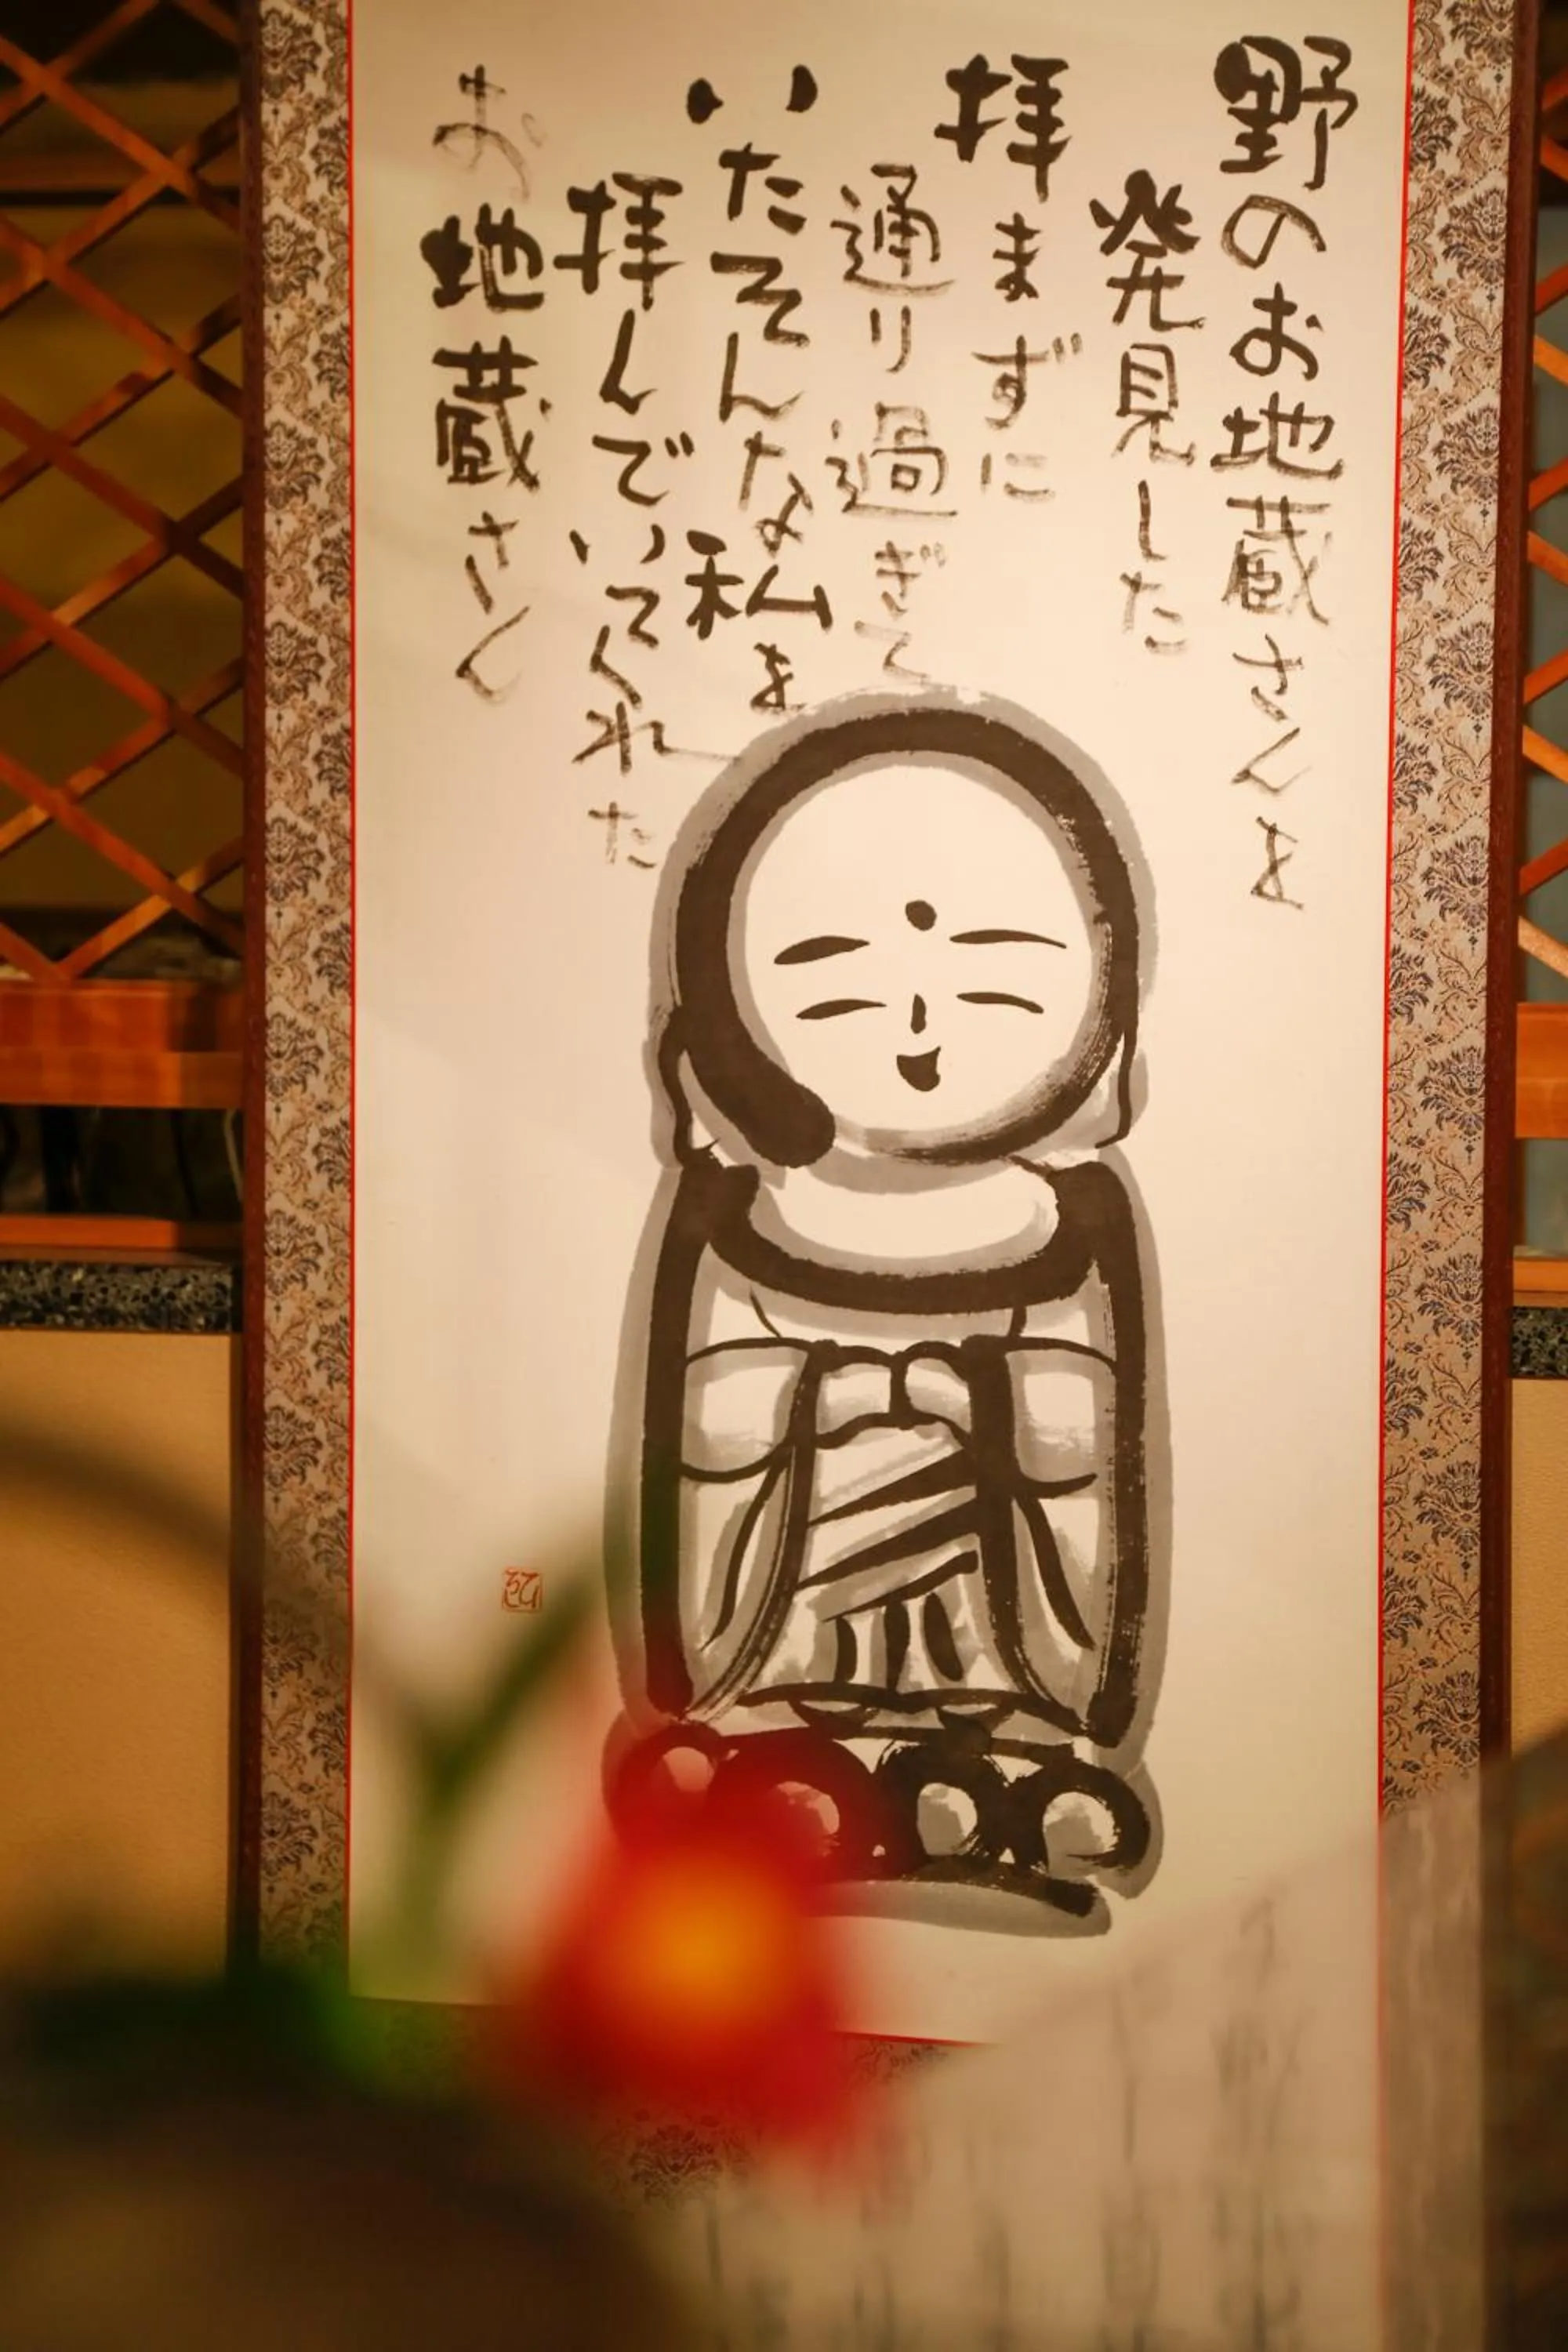 野のお地蔵さんを
発見した
拝まずに
通り過ぎて
いたそんな私を
拝んでいてくれた
お地蔵さん